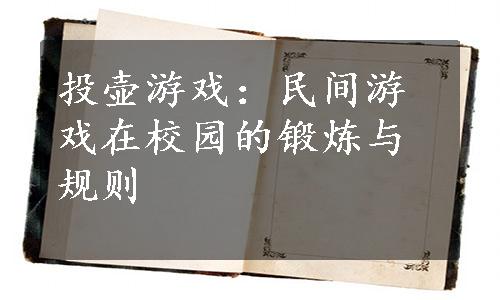 投壶游戏：民间游
戏在校园的锻炼与
规则